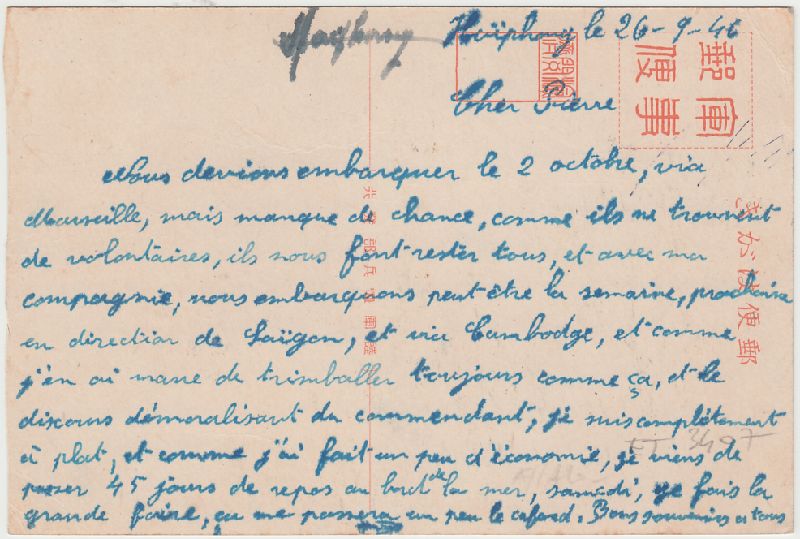 Haïphong Haïphong le 26-9-46
軍事
郵便
Cher Pierre
Nous devions embarquer le 2 octobre, via
Marseille, mais manque de chance, comme ils ne trouvent
de volontaires, ils nous font rester tous, et avec ma
compagnie, nous embarquons peut être la semaine, prochaine
en direction de Saïgon, et via Cambodge, et comme
j'en ai mare de trimballer toujours comme ça, et le
discours démoralisant du commendant, je suis complètement
à plat, et comme j'ai fait un peu d'économie, je viens de
poser 45 jours de repos au bord de la mer, samedi, je fais la
grande foire, ça me passera un peu le cafard. Bons souvenirs a tous
郵便
ET 3497